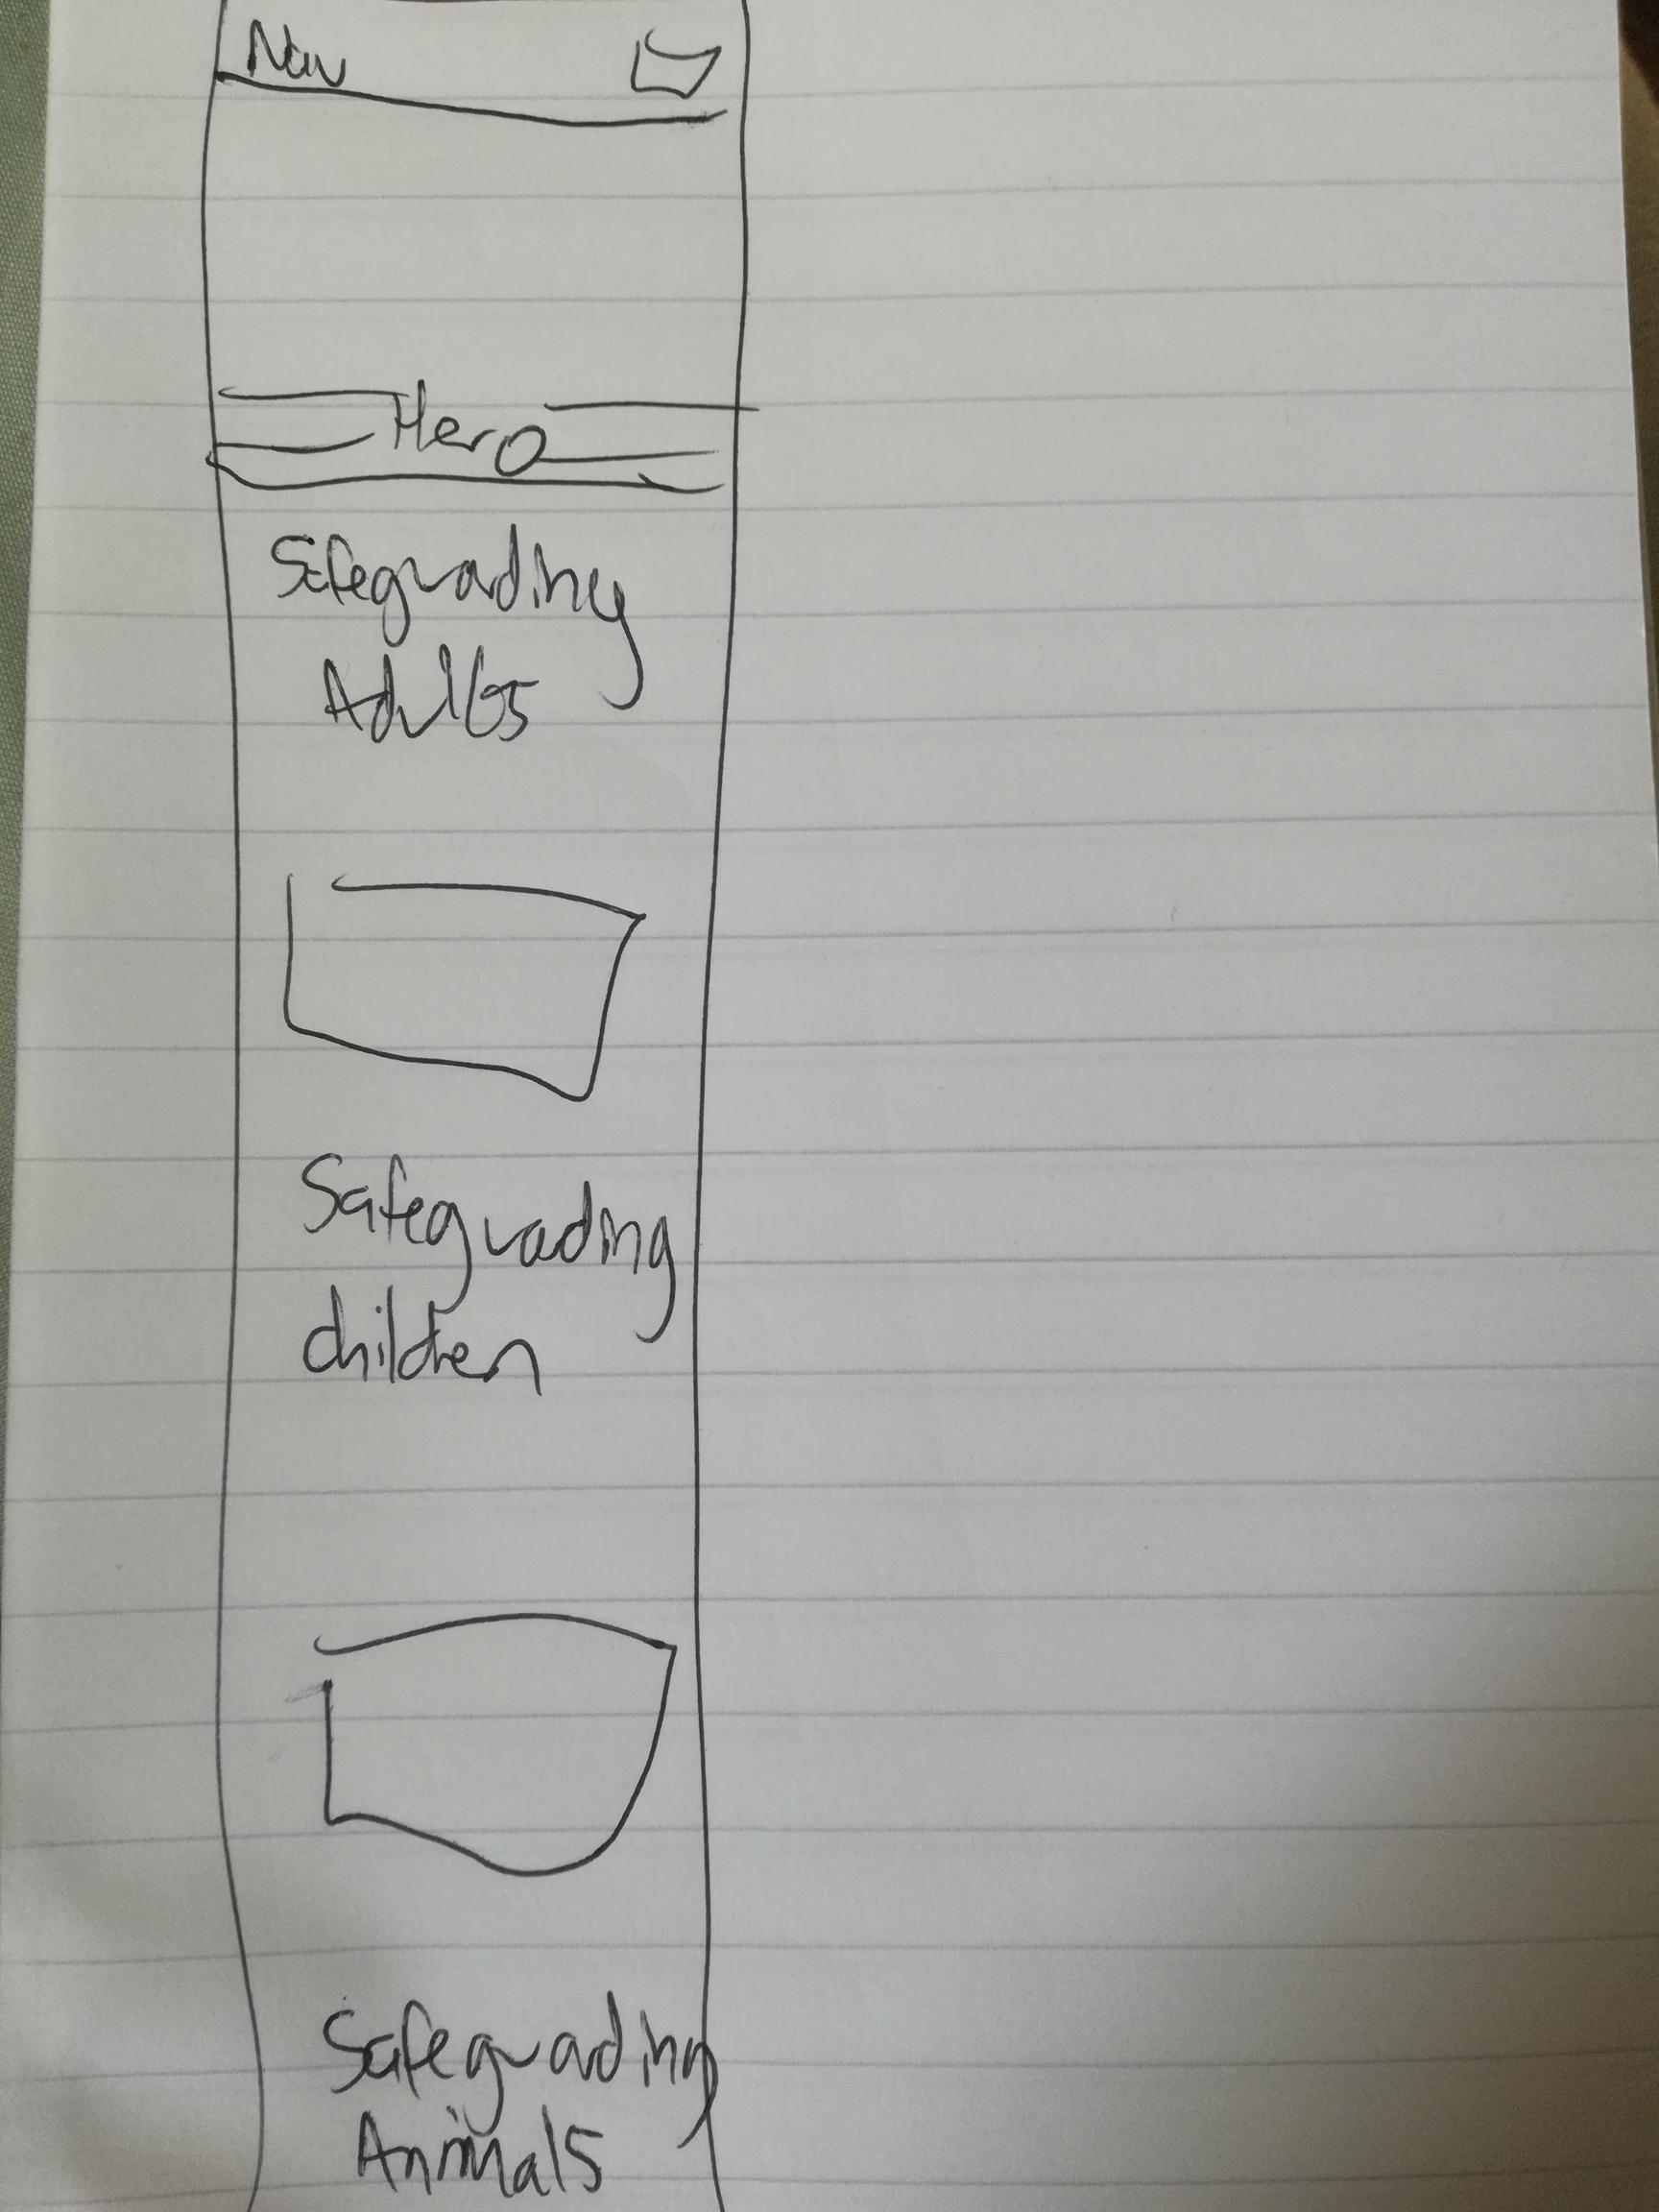 Nav
Hero
Safeguarding
Adults
Safeguarding
children
Safeguarding
Animals